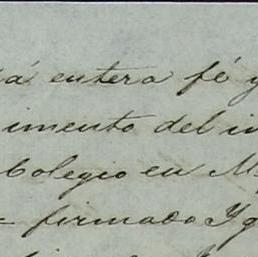 rá entera fé y
imento del in
Colegio en M
= firmado Yg